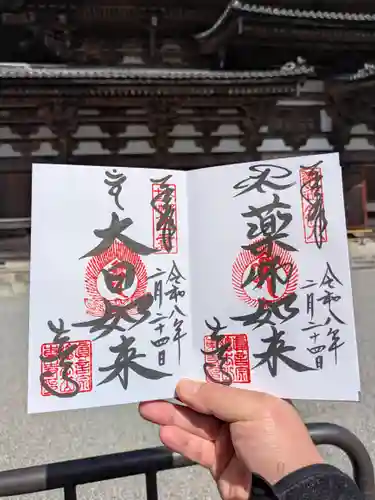 奉拝
令和八年
二月二十四日
薬師如来
奉拝
令和八年
二月二十四日
大日如来